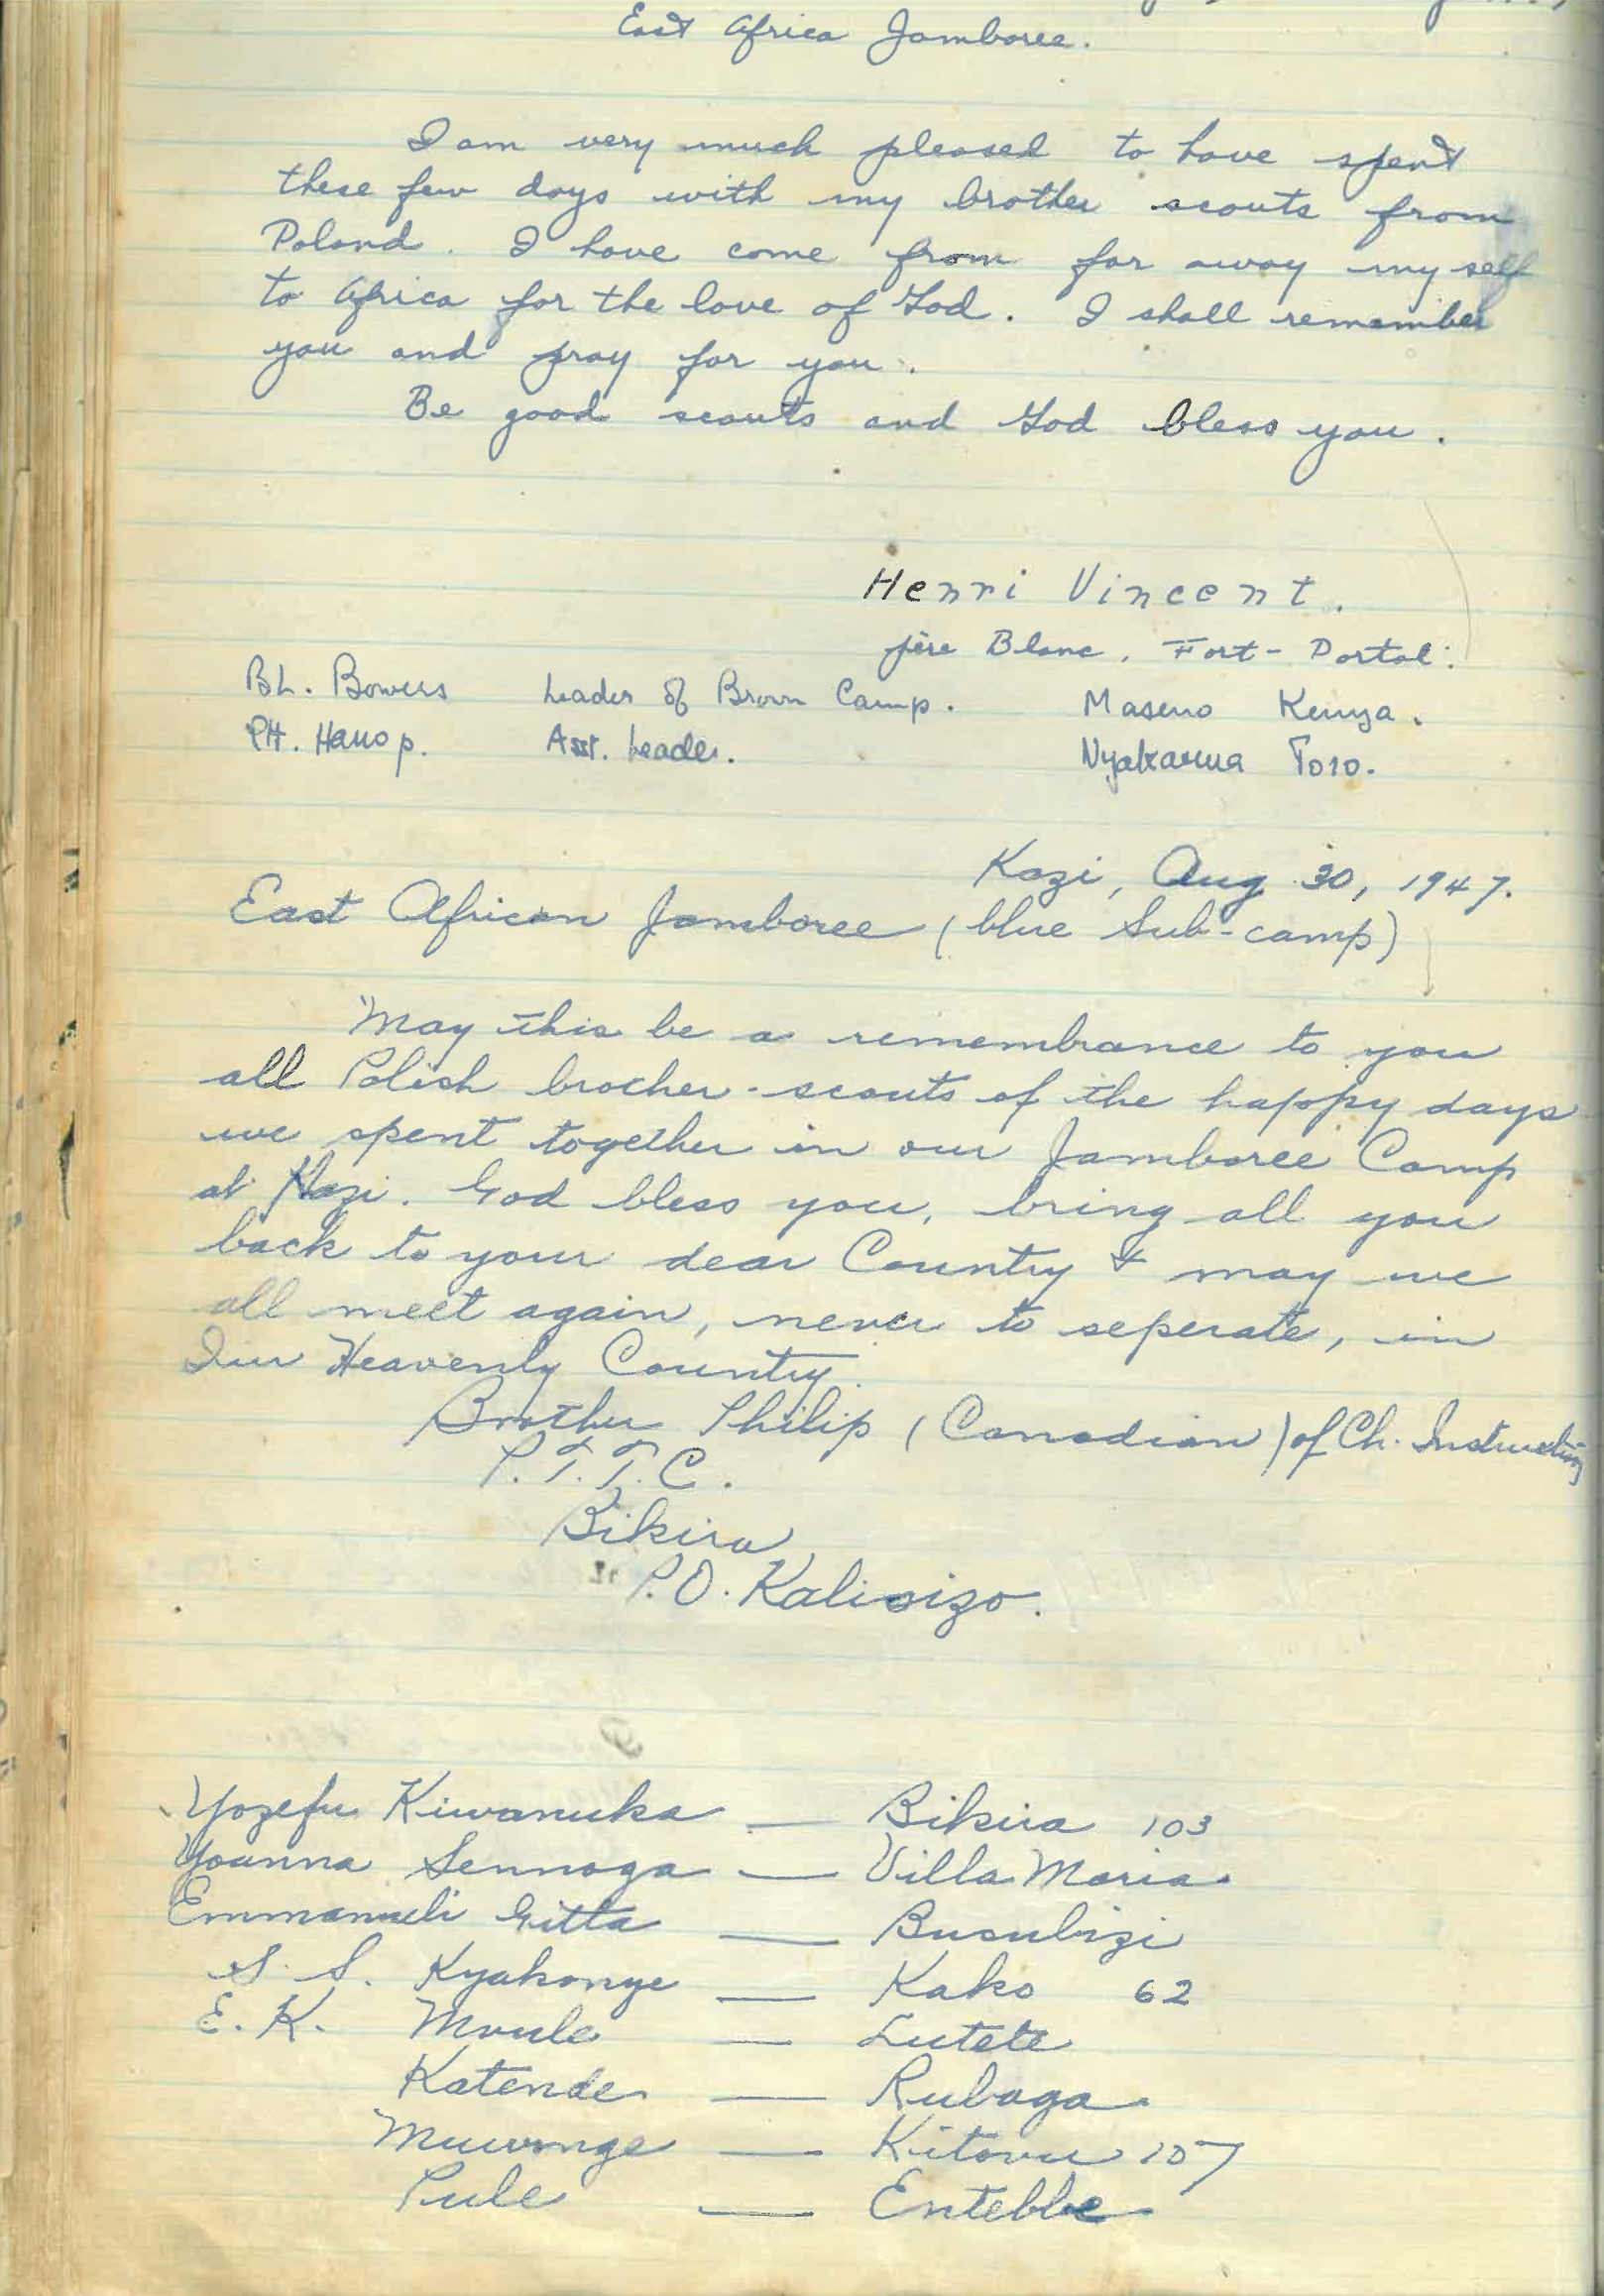 East Africa Jamboree.
I am very much pleased to have spent
these few days with my brother scouts from
Poland. I have come from far away my self
to Africa for the love of God. I shall remember
you and pray for you.
Be good scouts and God bless you.
Henri Vincent.
père Blanc, Fort-Portal.
B.L. Bowers Leader of Brown Camp. Maseno Kenya.
P.H. Asst. Leader. Toro.
Kazi, Aug 30, 1947.
East African Jamboree (blue Sub-camp)
May this be a remembrance to you
all Polish brother-scouts of the happy days
we spent together in our Jamboree Camp
at Kazi. God bless you, bring all you
back to your dear Country & may we
all meet again, never to seperate, in
Our Heavenly Country.
Brother Philip (Canadian) of Ch. Instruction
P.T.T.C.
Bikira
P.O. Kalisizo.
Yozefu Kiwanuka — Bikira 103
Yoanna Sennoga — Villa Maria.
Emmanueli Gitta — Busubizi
S. S. Kyakonye — Kako 62
E. K. Mvule — Lutete
Katende — Rubaga
Muwonge — Kitovu 107
Pule — Entebbe